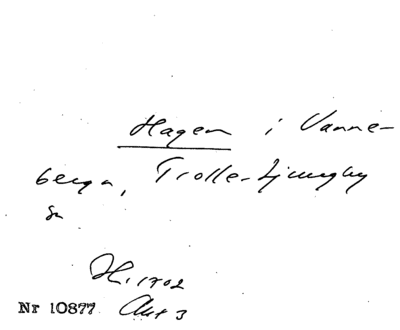 Hagen i Vanne-
berga, Trolle-Ljungby
sn
H. 1702
Nr 10877 Akt 3